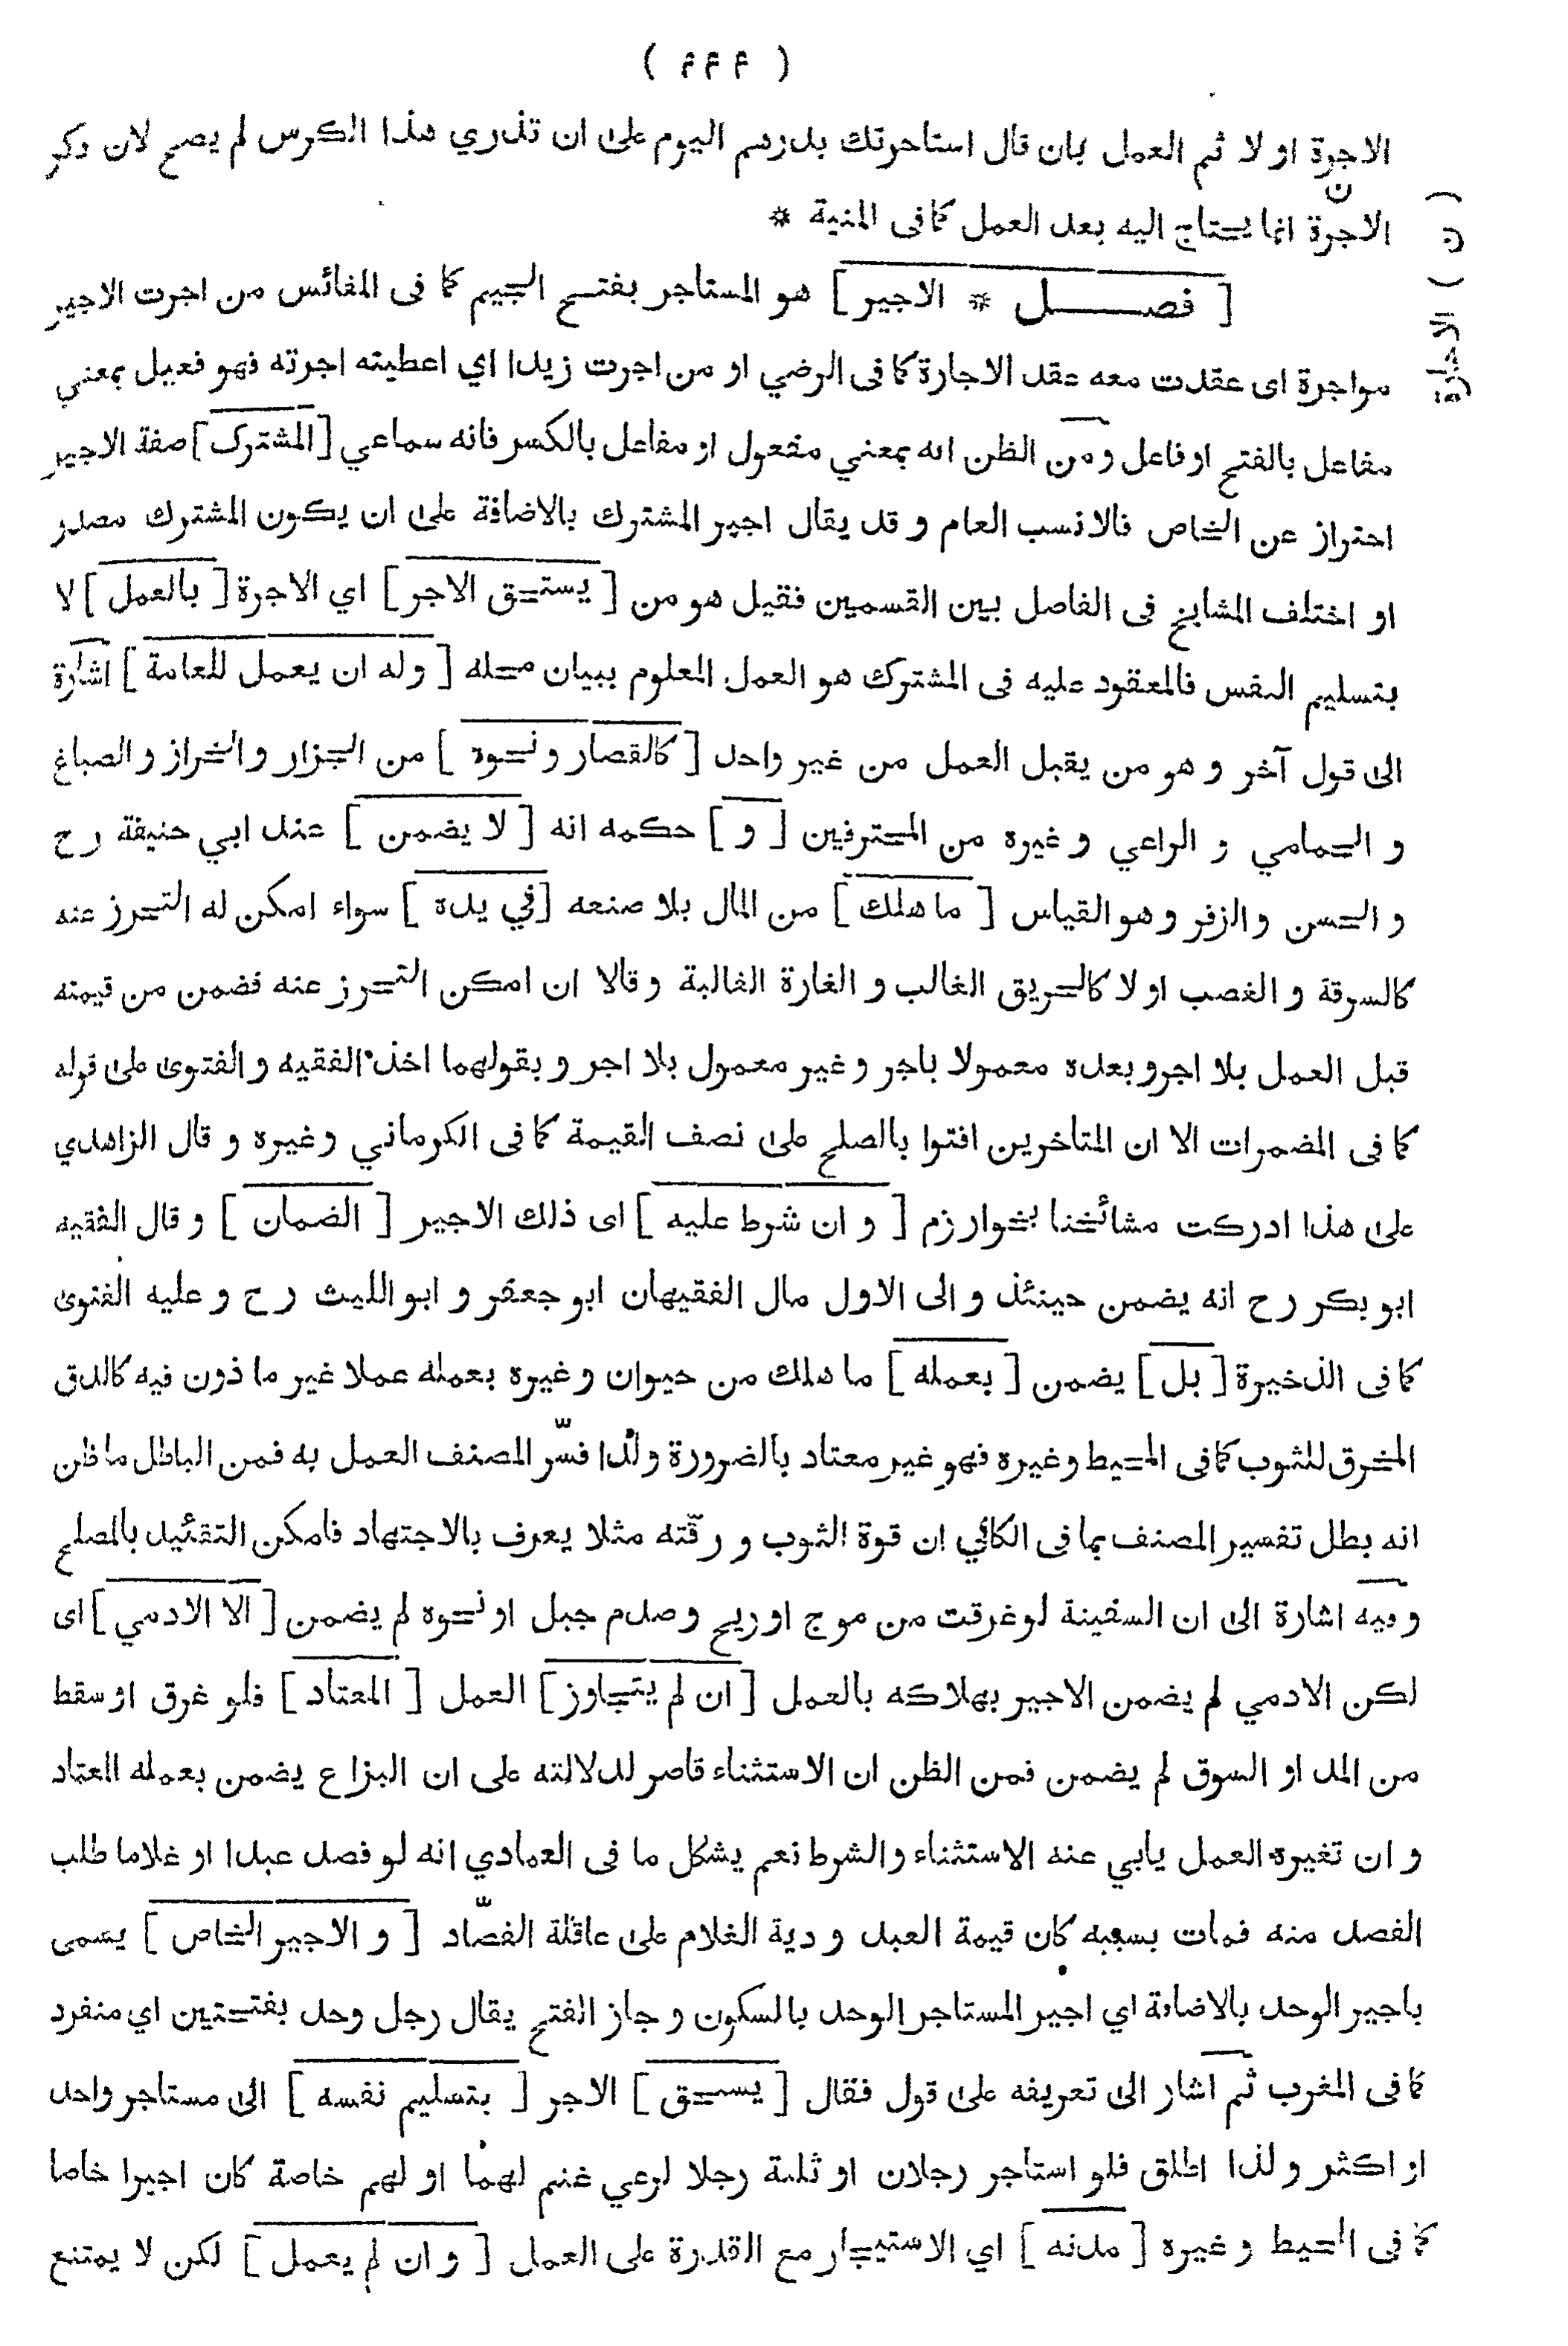 ( ۴۴۴ )
الاجرة او لا ثم العمل بان قال استاجرتك بدرهم اليوم على ان تذري هذا الكرس لم يصح لان ذكر
الاجرة انما يحتاج اليه بعد العمل كما فى المنية *
( ن ) الاجارة
[ فصـــل * الاجير ] هو المستاجر بفتح الجيم كما فى المغائس من اجرت الاجير
مواجرة اى عقدت معه عقد الاجارة كما فى الرضي او من اجرت زيدا اي اعطيته اجرته فهو فعيل بمعني
مفاعل بالفتح او فاعل و من الظن انه بمعني مفعول او مفاعل بالكسر فانه سماعي [ المشترك ] صفة الاجير
احتراز عن الخاص فالانسب العام و قد يقال اجير المشترك بالاضافة على ان يكون المشترك مصدر
او اختلف المشايخ فى الفاصل بين القسمين فقيل هو من [ يستحق الاجر ] اي الاجرة [ بالعمل ] لا
بتسليم النفس فالمعقود عليه فى المشترك هو العمل المعلوم ببيان محله [ و له ان يعمل للعامة ] اشارة
الى قول آخر و هو من يقبل العمل من غير واحد [ كالقصار و نحوه ] من الجزار و الخراز و الصباغ
و الحمامي و الراعي و غيره من المحترفين [ و ] حكمه انه [ لا يضمن ] عند ابي حنيفة رح
و الحسن و الزفر و هو القياس [ ما هلك ] من المال بلا صنعه [ في يده ] سواء امكن له التحرز عنه
كالسرقة و الغصب او لا كالحريق الغالب و الغارة الغالبة و قالا ان امكن التحرز عنه فضمن من قيمته
قبل العمل بلا اجر و بعده معمولا باجر و غير معمول بلا اجر و بقولهما اخذ الفقيه و الفتوى على قوله
كما فى المضمرات الا ان المتاخرين افتوا بالصلح على نصف القيمة كما فى الكرماني و غيره و قال الزاهدي
على هذا ادركت مشائخنا بخوارزم [ و ان شرط عليه ] اى ذلك الاجير [ الضمان ] و قال الفقيه
ابو بكر رح انه يضمن حينئذ و الى الاول مال الفقيهان ابو جعفر و ابو الليث رح و عليه الفتوى
كما فى الذخيرة [ بل ] يضمن [ بعمله ] ما هلك من حيوان و غيره بعمله عملا غير ما ذون فيه كالدق
المخرق للثوب كما فى المحيط و غيره فهو غير معتاد بالضرورة و لذا فسّر المصنف العمل به فمن الباطل ما ظن
انه بطل تفسير المصنف بما فى الكافي ان قوة الثوب و رقّته مثلا يعرف بالاجتهاد فامكن التقئيد بالمصلح
و فيه اشارة الى ان السفينة لو غرقت من موج او ريح و صدم جبل او نحوه لم يضمن [ الا الادمي ] اى
لكن الادمي لم يضمن الاجير بهلاكه بالعمل [ ان لم يتجاوز ] العمل [ المعتاد ] فلو غرق او سقط
من المد او السوق لم يضمن فمن الظن ان الاستثناء قاصر لدلالته على ان البزاع يضمن بعمله العتاد
و ان تغيره العمل يابي عنه الاستثناء و الشرط نعم يشكل ما فى العمادي انه لو فصد عبدا او غلاما طلب
الفصد منه فمات بسببه كان قيمة العبد و دية الغلام على عاقلة الفصّاد [ و الاجير الخاص ] يسمى
باجير الوحد بالاضافة اي اجير المستاجر الوحد بالسكون و جاز الفتح يقال رجل وحد بفتحتين اي منفرد
كما فى المغرب ثم اشار الى تعريفه على قول فقال [ يستحق ] الاجر [ بتسليم نفسه ] الى مستاجر واحد
او اكثر و لذا اطلق فلو استاجر رجلان او ثلثة رجلا لرعي غنم لهما او لهم خاصة كان اجيرا خاصا
كما فى المحيط و غيره [ مدته ] اي الاستيجار مع القدرة على العمل [ و ان لم يعمل ] لكن لا يمتنع